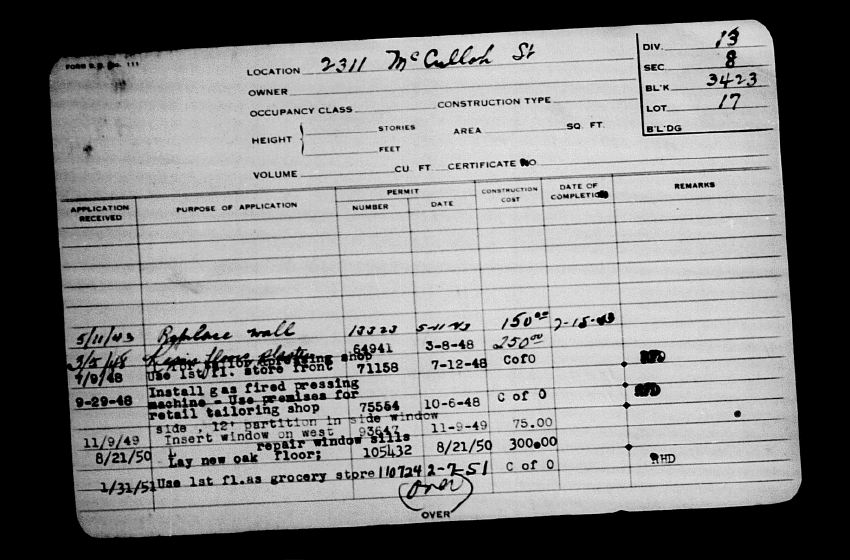 FORM B.D. No. 111
LOCATION 2311 McCulloh St
OWNER
OCCUPANCY CLASS CONSTRUCTION TYPE
HEIGHT STORIES AREA SQ. FT.
FEET
VOLUME CU. FT. CERTIFICATE NO
DIV. 13
SEC 8
BL'K 3423
LOT 17
B'L'DG
APPLICATION RECEIVED PURPOSE OF APPLICATION PERMIT NUMBER DATE CONSTRUCTION COST DATE OF COMPLETION REMARKS
5/11/43 Replace wall 13323 5-11-43 150.00 7-15-43
3/5/48 floor plaster 64941 3-8-48 250.00
for tailor &pressing shop
7/9/48 Use 1st fl. store front 71158 7-12-48 CofO RHD
Install gas fired pressing
9-29-48 machine - Use premises for RHD
retail tailoring shop 75564 10-6-48 C of O
side , 12' partition in side window
11/9/49 Insert window on west 93647 11-9-49 75.00
repair window sills
8/21/50 Lay new oak floor; 105432 8/21/50 300.00
1/31/51 Use 1st fl.as grocery store 110724 2-7-51 C of O RHD
(over)
OVER